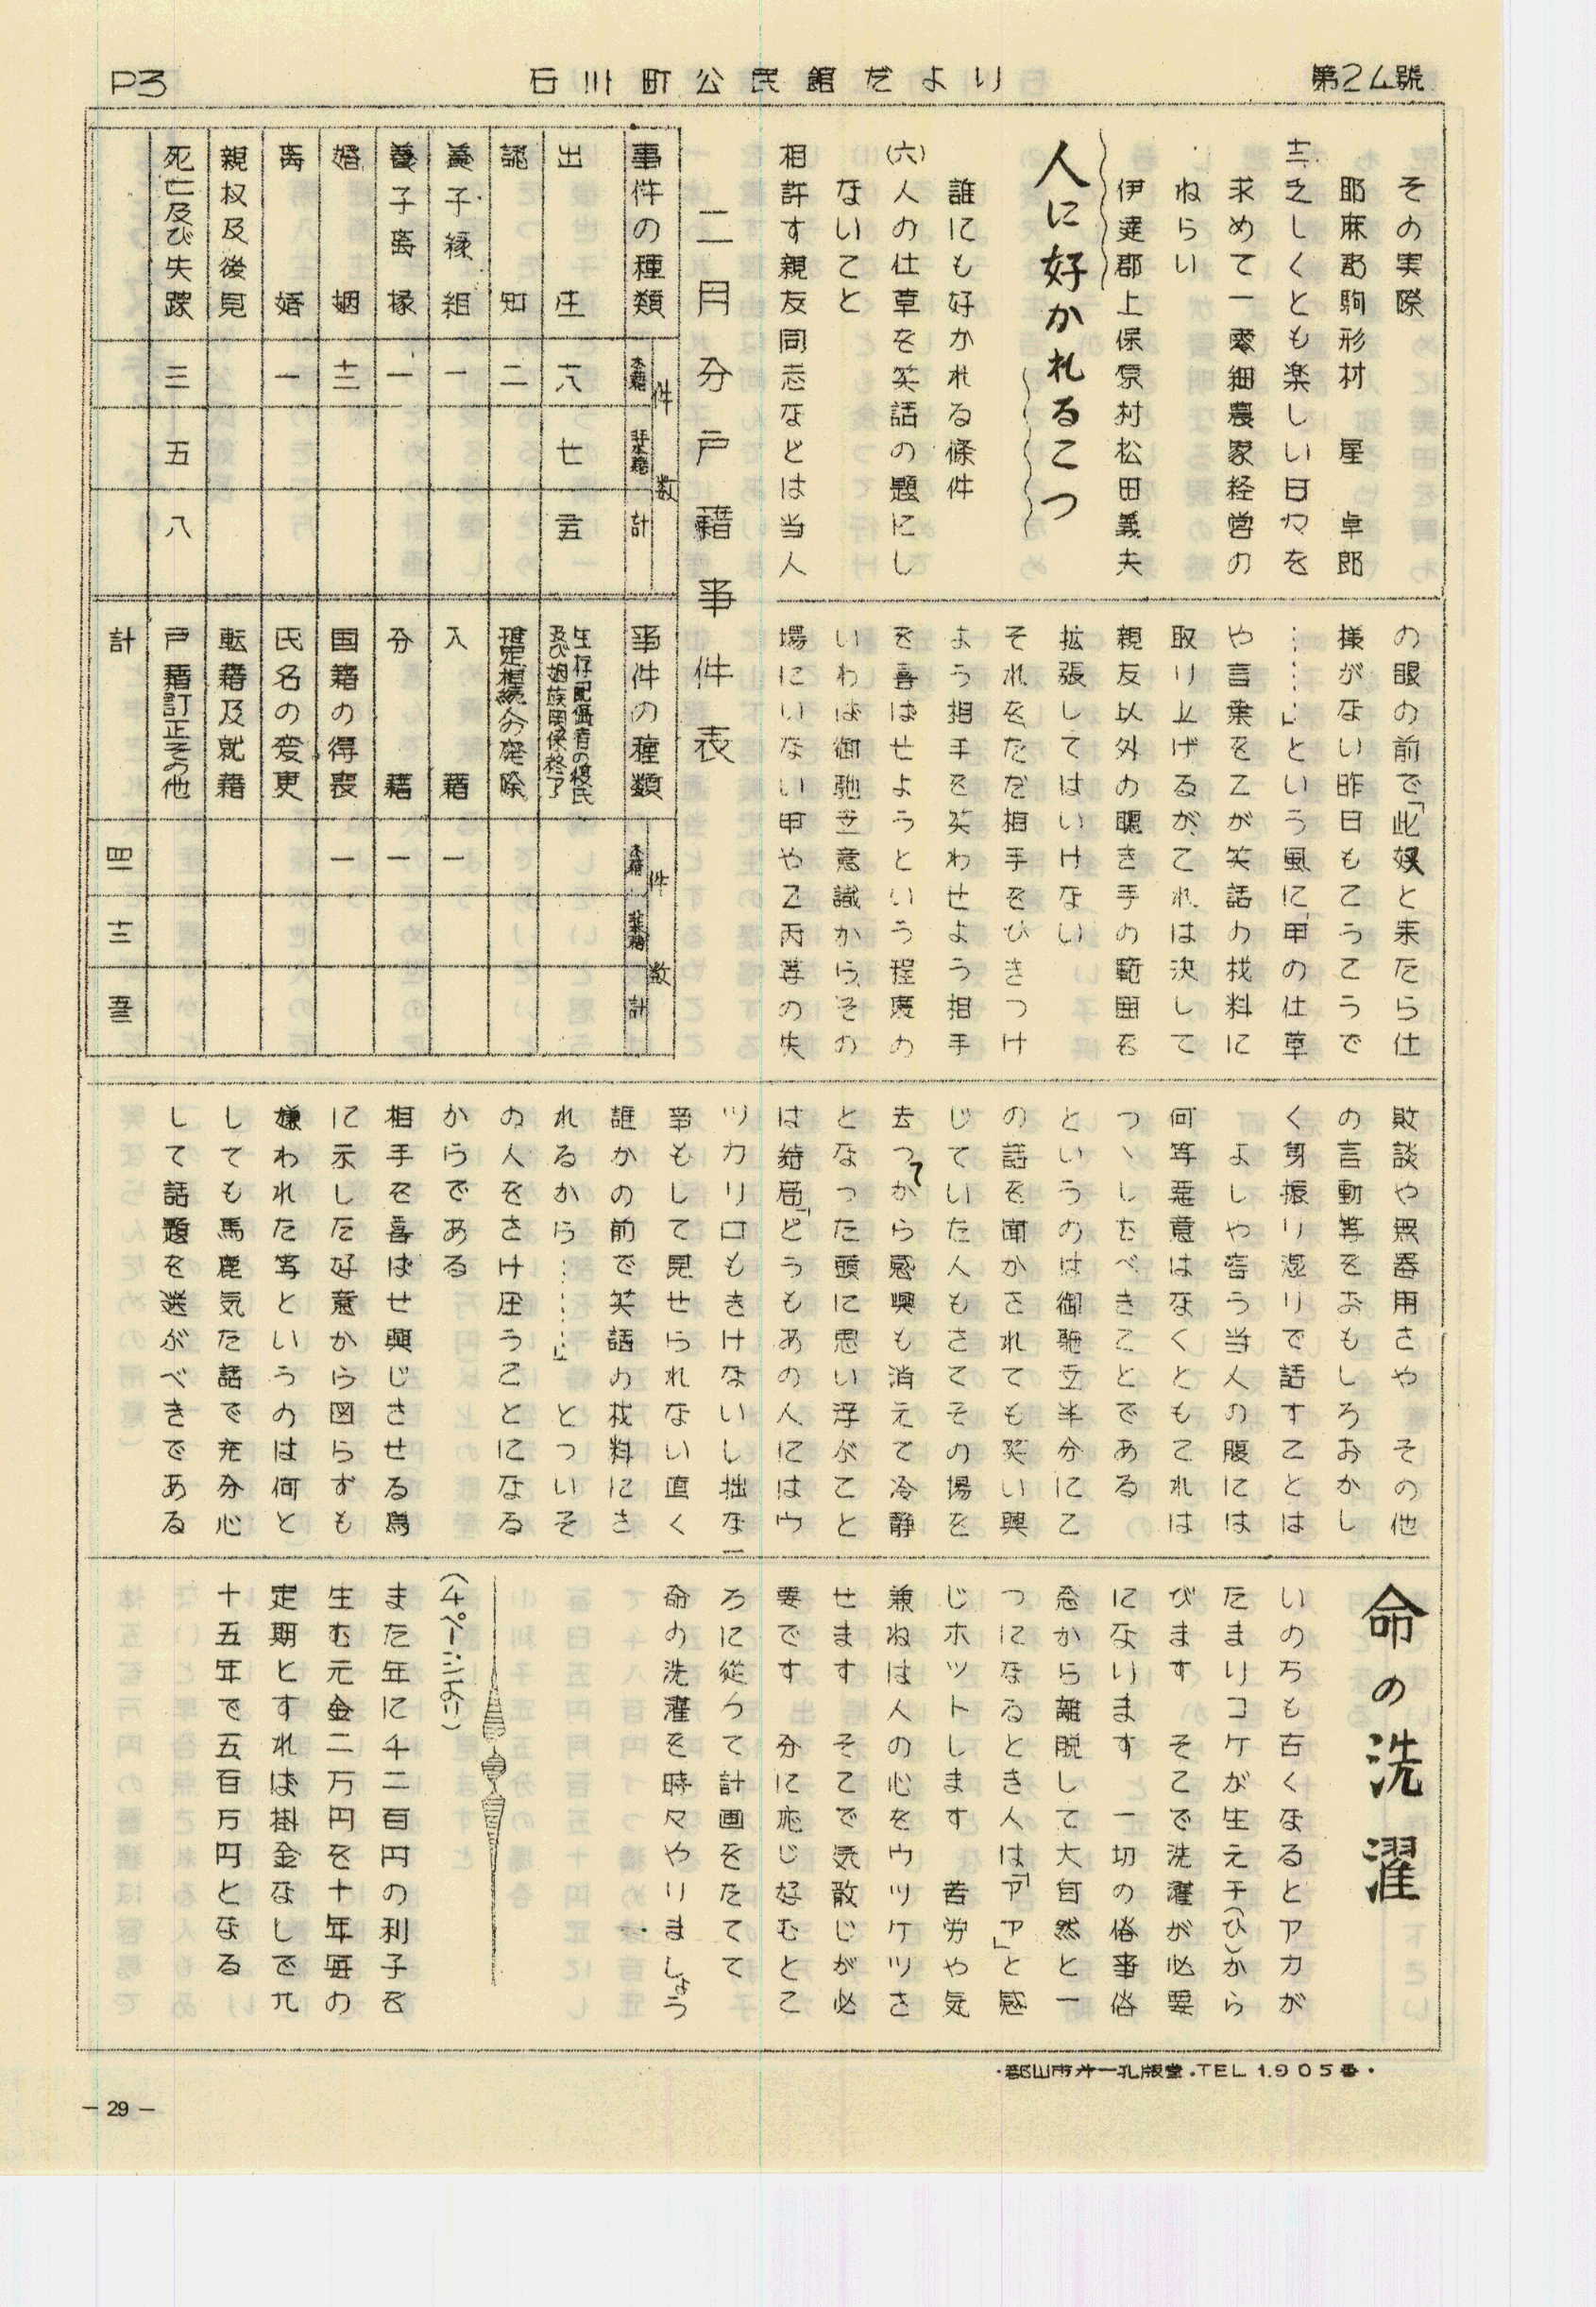 第24號
石川町公民館だより
P3
その実際
耶麻郡駒形村　星　卓郎
三、乏しくとも楽しい日々を
求めて一零細農家経営の
ねらい
伊達郡上保原村松田義夫
人に好かれるこつ
誰にも好かれる條件
(六)人の仕草を笑話の題にし
ないこと
相許す親友同志などは当人
の眼の前で「此奴と来たら仕
様がない昨日もこうこうで
……」という風に、甲の仕草
や言葉を乙が笑話の材料に
取り上げるが、これは決して
親友以外の聴き手の範囲を
拡張してはいけない
それをただ相手をひきつけ
よう相手を笑わせよう相手
を喜ばせようという程度の
いわば御馳立意識から、その
場にいない甲や乙丙等の失
敗談や無器用さや　その他
の言動等をおもしろおかし
く身振り混りで話すことは
よしや言う当人の腹には
何等悪意はなくともこれは
つゝしむべきことである
というのは御馳立半分に乙
の話を聞かされても笑い興
じていた人もさてその場を
去ってから感興も消えて冷静
となった頭に思い浮ぶこと
は結局「どうもあの人にはウ
ツカリ口もきけないし拙な
事もして見せられない直ぐ
誰かの前で笑話の材料にさ
れるから……」とついそ
の人をさけ圧うことになる
からである
相手を喜ばせ興じさせる為
に示した好意から図らずも
嫌われた等というのは何と
しても馬鹿気た話で充分心
して話題を選ぶべきである
二月分戸籍事件表
事件の種類　件数　本籍　非本籍　計
出生　一八　七　二五
認知　二
養子縁組　一
養子离縁　一
婚姻　十三
离婚　一
親权及後見
死亡及び失踪　三　五　八
事件の種類　件数　本籍　非本籍　計
生存配偶者の復氏及び姻族関係終了
推定相続人の廃除
入籍　一
分籍　一
国籍の得喪　一
氏名の変更
転籍及就籍
戸籍訂正その他
計　四一　十三
命の洗濯
いのちも古くなるとアカが
たまりコケが生え干(ひ)から
びます　そこで洗濯が必要
になります　一切の俗事俗
念から離脱して大自然と一
つになるとき人は「アア」と感
じホットします　苦労や気
兼ねは人の心をウツケツさ
せます　そこで気散じが必
要です　分に応じ好むとこ
ろに従って計画をたてて
命の洗濯を時々やりましょう
(4ページより)
また年に千二百円の利子を
生む元金二万円を十年毎の
定期とすれば掛金なしで九
十五年で五百万円となる
・郡山市才一孔版堂．TEL 1.905番・
－29－